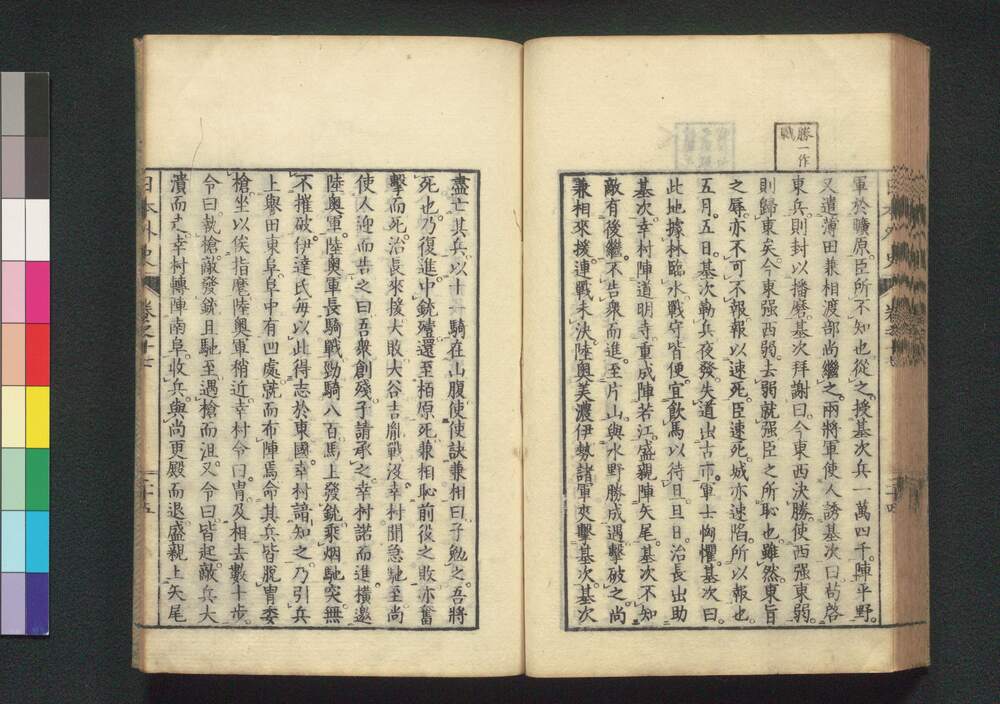 勝一作
戰
軍於曠原臣所不知也從之授基次兵一萬四千陣平野
又遣薄田兼相渡部尚繼之兩將軍使人誘基次曰苟啓
東兵則封以播磨基次拜謝曰今東西決勝使西强東弱
則歸東矣今東强西弱去弱就强臣之所恥也雖然東旨
之辱亦不可不報報以速死臣速死城亦速陷所以報也
五月五日基次勒兵夜發失道出古市軍士恟懼基次曰
此地據林臨水戰守皆便宜飲馬以待旦旦日治長出助
基次幸村陣道明寺重成陣若江盛親陣矢尾基次不知
敵有後繼不告衆而進至片山與水野勝成遇擊破之尚
兼相來援連戰未決陸奧美濃伊勢諸軍夾擊基次基次
盡亡其兵以十一騎在山腹使使訣兼相曰子勉之吾將
死也乃復進中銃殪還至栢原死兼相恥前役之敗亦奮
擊而死治長來援大敗大谷吉胤戰沒幸村聞急馳至尚
使人迎而告之曰吾衆創殘子請承之幸村諾而進橫邀
陸奧軍陸奧軍長騎戰勁騎八百馬上發銃乘烟馳突無
不摧破伊達氏每以此得志於東國幸村諳知之乃引兵
上譽田東阜阜中有凹處就而布陣焉命其兵皆脫冑委
槍坐以俟指麾陸奧軍稍近幸村令曰冑及相去數十步
令曰執槍敵發銃且馳至遇槍而沮又令曰皆起敵兵大
潰而走幸村轉陣南阜收兵與尚更殿而退盛親上矢尾
日本外史 卷之